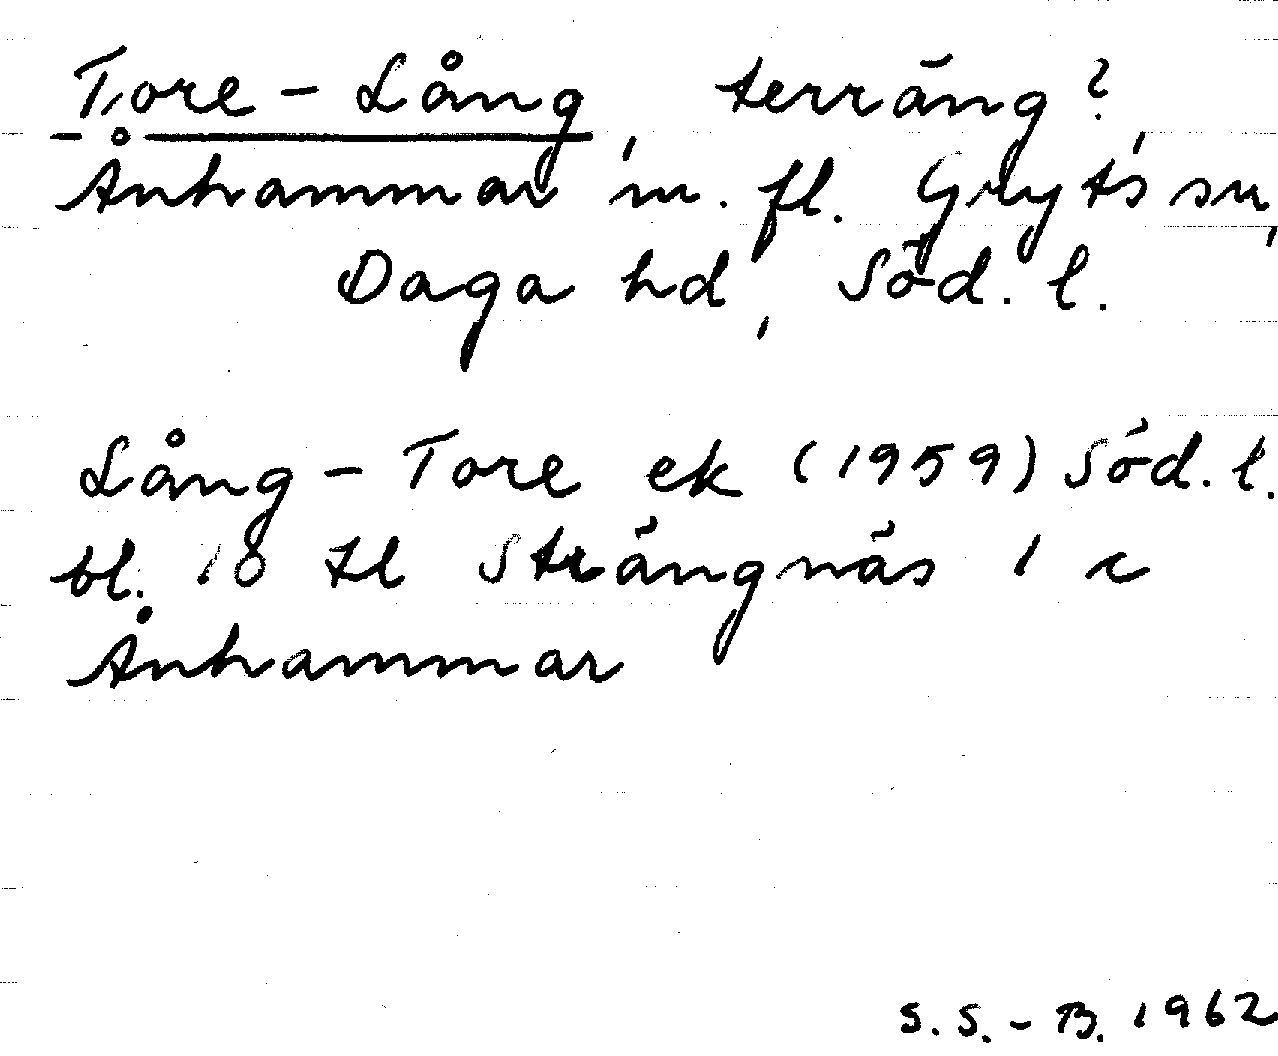 Tore-Lång, terräng?,
Ånhammar m. fl. Gryts sn,
Daga hd, Söd. l.
Lång-Tore ek (1959) Söd. l.
bl. 18 tl Strängnäs 1 c
Ånhammar
S. S.-B. 1962